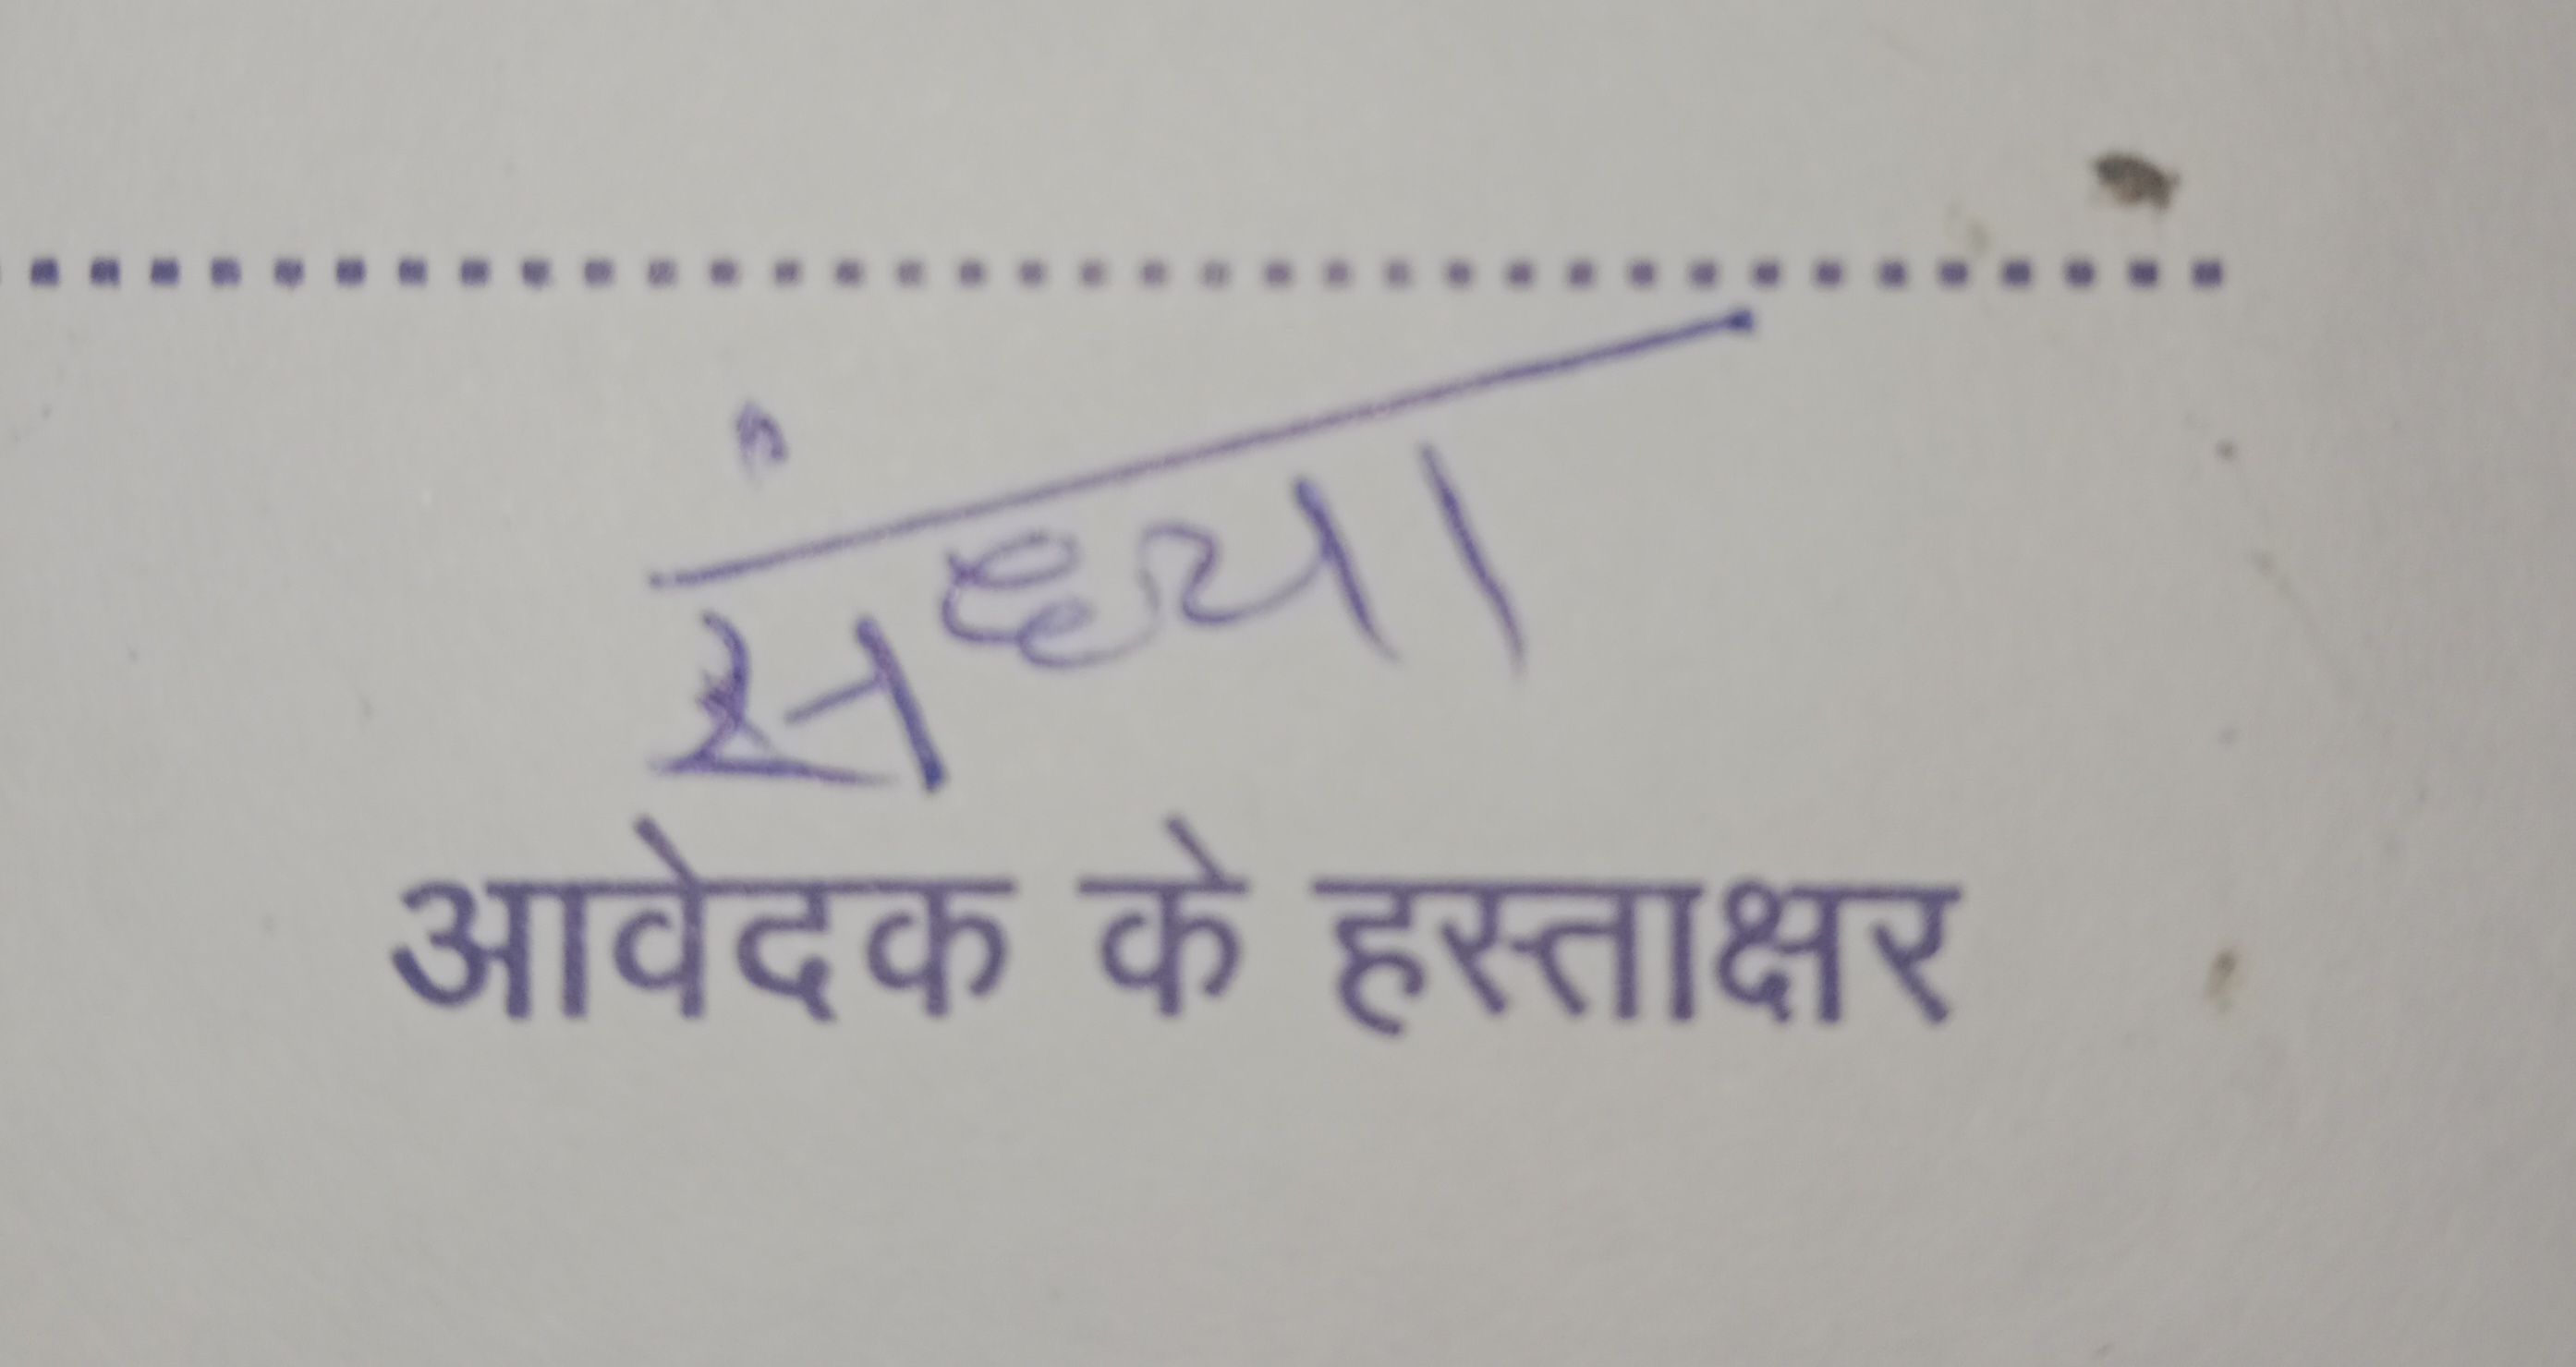 संध्या
आवेदक के हस्ताक्षर